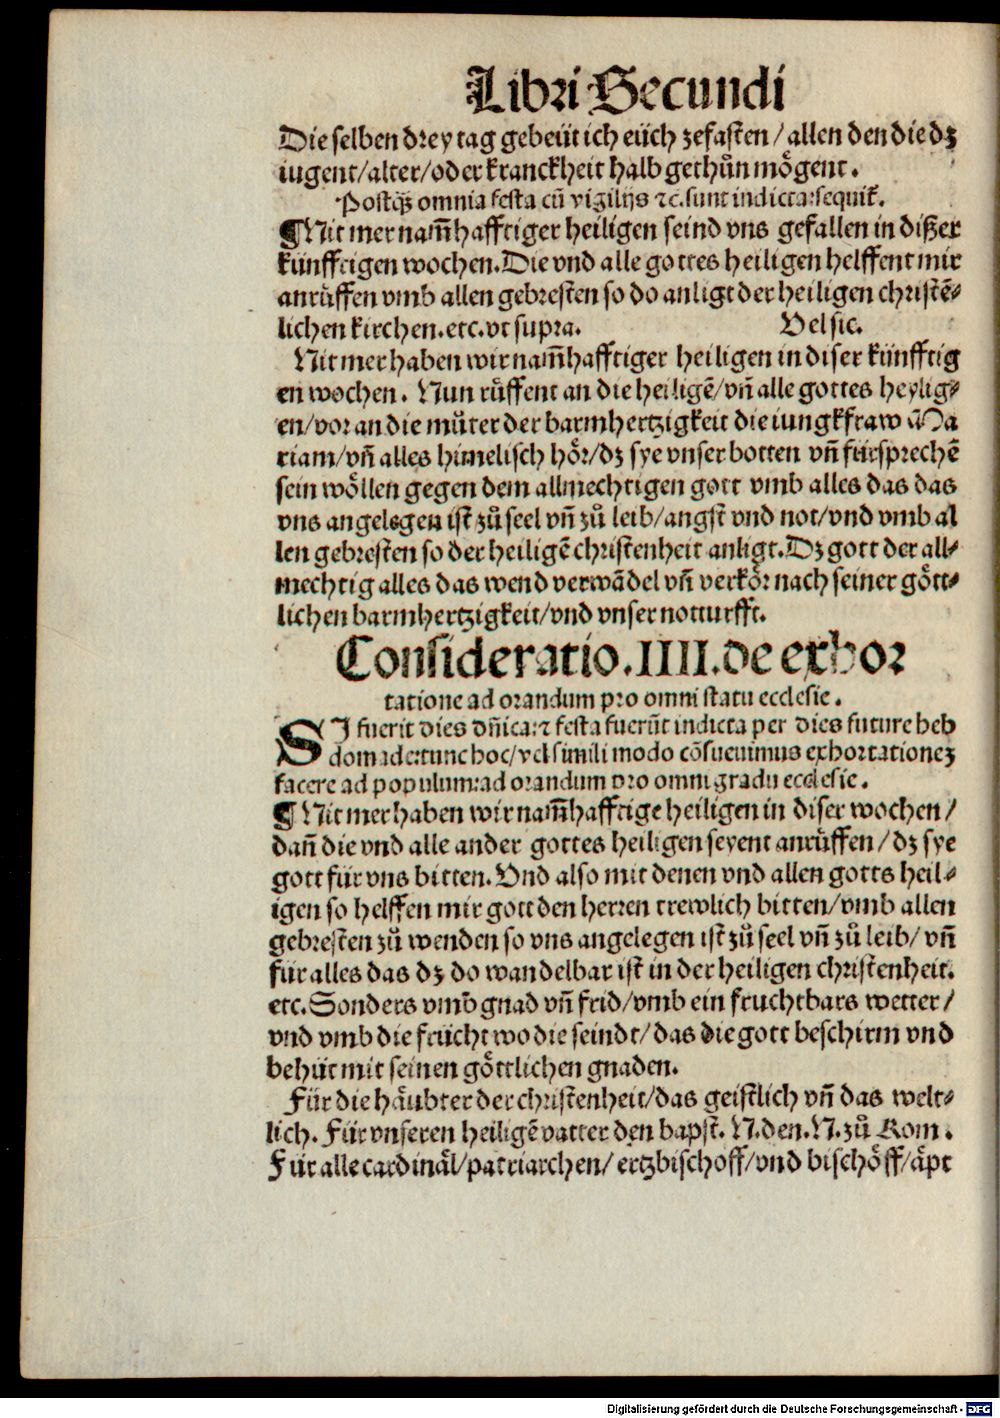 Libri Secundi
Die selben drey tag gebeüt ich eüch zefasten / allen den die dz
iugent/alter/oder kranckheit halb gethůn mögent.
Postq̃ omnia festa cū vigilijs ⁊c. sunt indicta: sequit̃.
¶ Nit mer nam̃hafftiger heiligen seind vns gefallen in dißer
künfftigen wochen. Die vnd alle gottes heiligen helffent mir
anrůffen vmb allen gebresten so do anligt der heiligen christē⸗
lichen kirchen. etc. vt supra. Vel sic.
Nit mer haben wir nam̃hafftiger heiligen in diser künfftig
en wochen. Nun růffent an die heiligē/vñ alle gottes heylig⸗
en/vor an die můter der barmhertzigkeit die iungkfraw Ma
riam/vñ alles himelisch hör/dz sye vnser botten vñ fürsprechē
sein wöllen gegen dem allmechtigen gott vmb alles das das
vns angelegen ist zů seel vñ zů leib/angst vnd not/vnd vmb al
len gebresten so der heiligē christenheit anligt. Dz gott der all⸗
mechtig alles das wend verwādel vñ verkör nach seiner gött⸗
lichen barmhertzigkeit/vnd vnser notturfft.
Consideratio. IIII. de exhor
tatione ad orandum pro omni statu ecclesie.
SI fuerit dies dñica: ⁊ festa fuerūt indicta per dies future heb
domade: tunc hoc/vel simili modo cōsueuimus exhortationez
facere ad populum: ad orandum pro omni gradu ecclesie.
¶ Nit mer haben wir nam̃hafftige heiligen in diser wochen/
dañ die vnd alle ander gottes heiligen seyent anrůffen/dz sye
gott für vns bitten. Vnd also mit denen vnd allen gotts heil⸗
igen so helffen mir gott den herren trewlich bitten/vmb allen
gebresten zů wenden so vns angelegen ist zů seel vñ zů leib/vñ
für alles das dz do wandelbar ist in der heiligen christenheit.
etc. Sonders vmb gnad vñ frid/vmb ein fruchtbars wetter/
vnd vmb die frücht wo die seindt/das die gott beschirm vnd
behüt mit seinen göttlichen gnaden.
Für die häubter der christenheit/das geistlich vñ das welt⸗
lich. Für vnseren heiligē vatter den bapst. N. den. N. zů Rom.
Für alle cardinäl/patriarchen/ertzbischoff/vnd bischöff/äpt
Digitalisierung gefördert durch die Deutsche Forschungsgemeinschaft - DFG